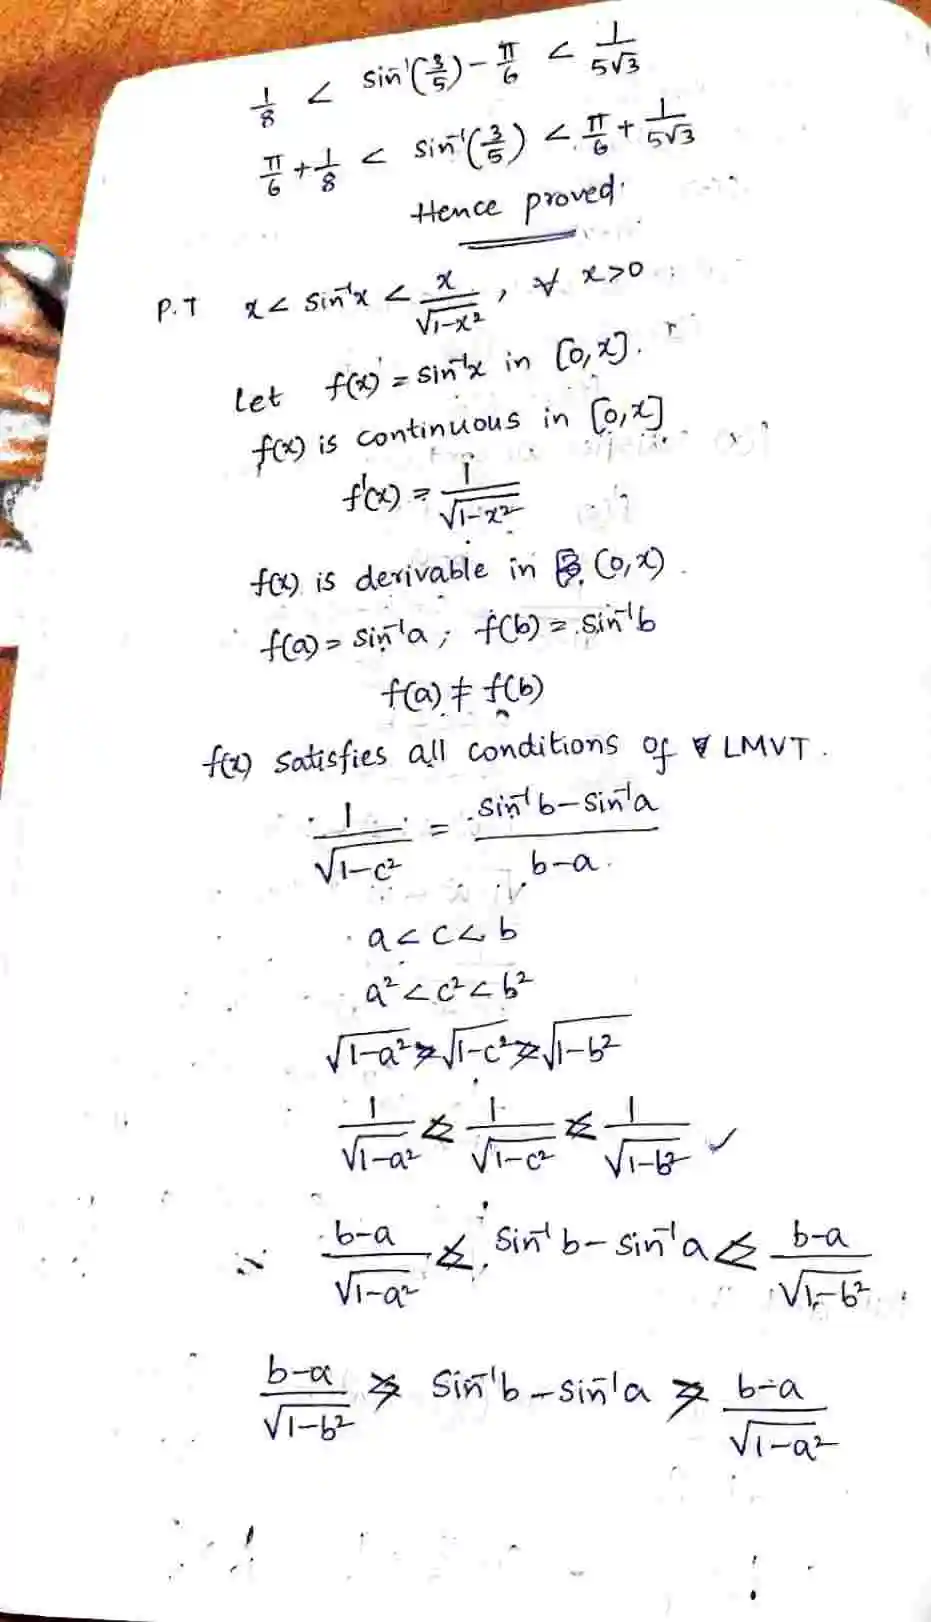 1/8 < sin⁻¹(3/5) - π/6 < 1/5√3
π/6 + 1/8 < sin⁻¹(3/5) < π/6 + 1/5√3
Hence proved.
P.T x < sin⁻¹x < x/√1-x², ∀ x>0
Let f(x) = sin⁻¹x in [0,x].
f(x) is continuous in [0,x]
f'(x) = 1/√1-x²
f(x) is derivable in (0,x).
f(a) = sin⁻¹a ; f(b) = sin⁻¹b
f(a) ≠ f(b)
f(x) satisfies all conditions of LMVT.
1/√1-c² = sin⁻¹b - sin⁻¹a / b-a
a < c < b
a² < c² < b²
√1-a² > √1-c² > √1-b²
1/√1-a² < 1/√1-c² < 1/√1-b² ✓
∴ b-a/√1-a² < sin⁻¹b - sin⁻¹a < b-a/√1-b²
b-a/√1-b² > sin⁻¹b - sin⁻¹a > b-a/√1-a²